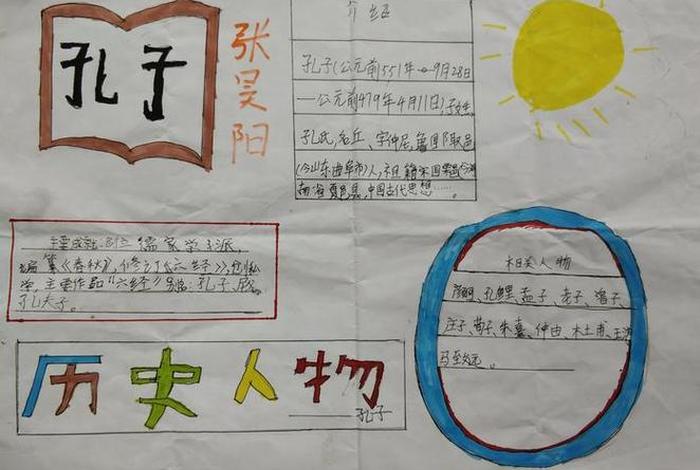 孔子
张昊阳
介绍
孔子(公元前551年9月28日
—公元前479年4月11日),子姓,
孔氏,名丘,字仲尼,鲁国陬邑
(今山东曲阜市)人,祖籍宋国栗邑(今河
南省夏邑县,中国古代思想……
主要成就:创立儒家学派,
编纂《春秋》,修订《六经》,创办私
学,主要作品"六经"别名:孔子,
孔夫子.
历史人物
孔子
相关人物
颜回、孔鲤、孟子、老子、
庄子、荀子、朱熹、仲由、